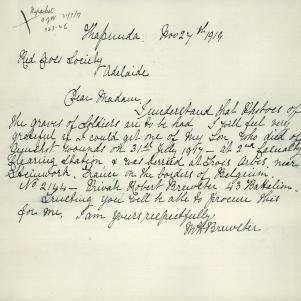 Kapunda Nov 27th 1919
Red Cross Society
Adelaide
Dear Madam
I understand that Photoes of
the graves of Soldiers are to be had. I will feel very
grateful if I could get one of my Son, who died of
Gunshot wounds on 31st July 1917 – at 2nd Casualty
Clearing Station, & was buried at Trois Arbres, near
Steenwerk, France on the borders of Belgium.
No 2144 – Private Robert Brewster 43 Batalion.
Trusting you will be able to procure this
for me, I am yours respectfully
Brewster